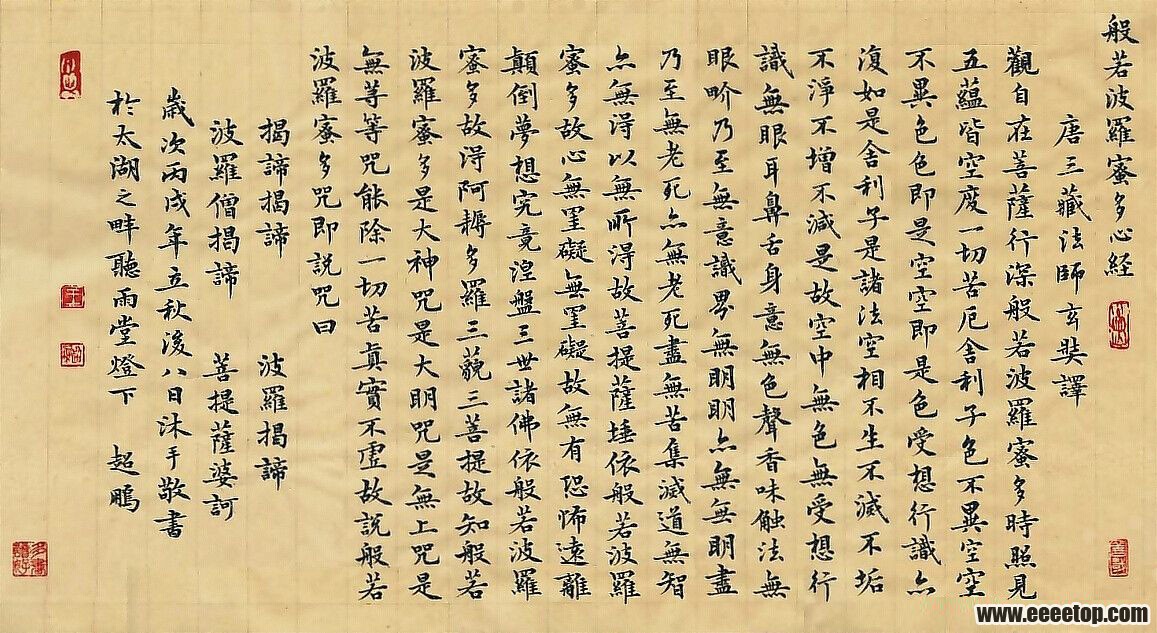 般若波羅蜜多心経
唐三藏法師玄奘譯
觀自在菩薩行深般若波羅蜜多時照見
五蘊皆空度一切苦厄舍利子色不異空空
不異色色即是空空即是色受想行識亦
復如是舍利子是諸法空相不生不滅不垢
不淨不增不減是故空中無色無受想行
識無眼耳鼻舌身意無色聲香味触法無
眼畍乃至無意識界無明明亦無無明盡
乃至無老死亦無老死盡無苦集滅道無智
亦無得以無所得故菩提薩埵依般若波羅
蜜多故心無罣礙無罣礙故無有恐怖遠離
顛倒夢想究竟涅盤三世諸佛依般若波羅
蜜多故得阿耨多羅三藐三菩提故知般若
波羅蜜多是大神咒是大明咒是無上咒是
無等等咒能除一切苦真實不虛故説般若
波羅蜜多咒即説咒曰
揭諦揭諦 波羅揭諦
波羅僧揭諦 菩提薩婆訶
歲次丙戌年立秋後八日沐手敬書
於太湖之畔聽雨堂燈下 超鵬
www.eeeetop.com